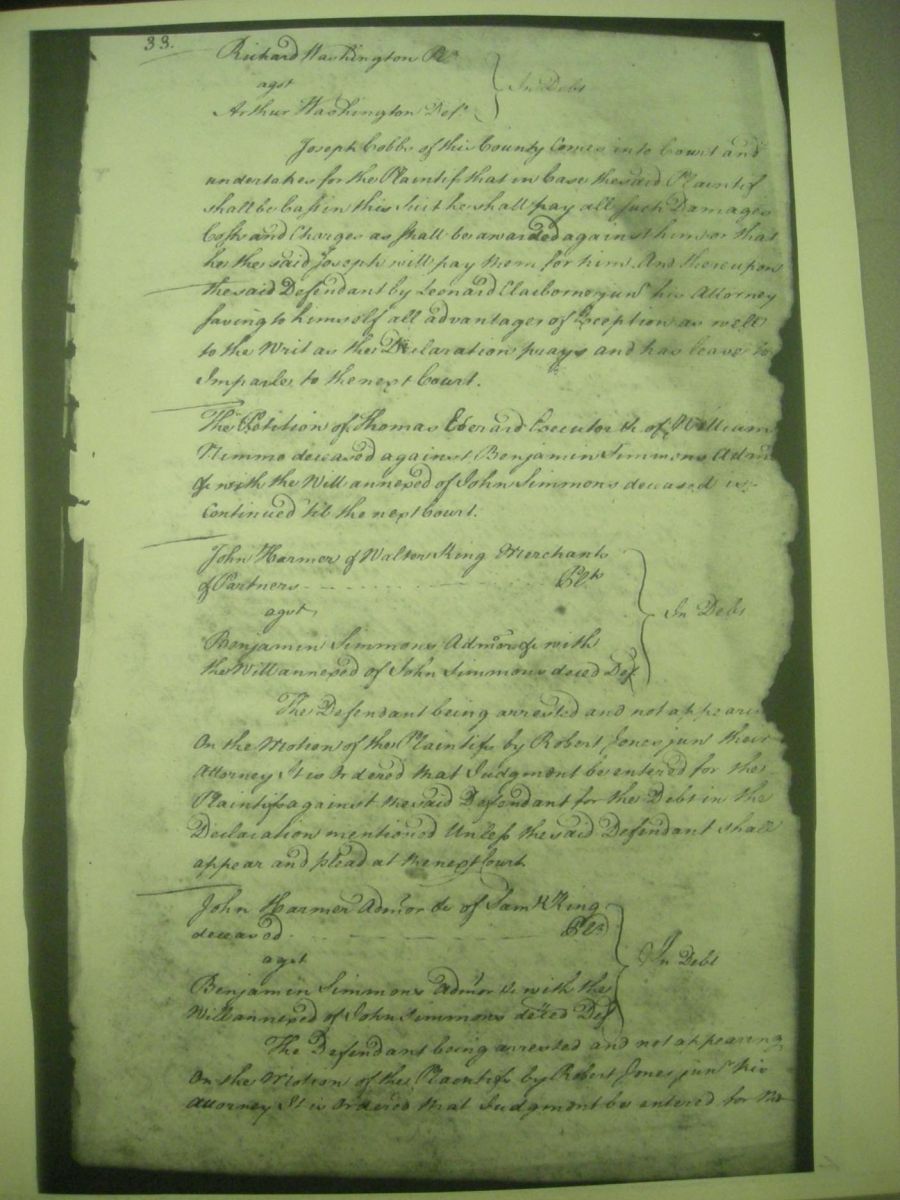 33.
Richard Washington Pl
agst
Arthur Washington Def.t
In Debt
Joseph Cobbs of this County Comes into Court and
undertakes for the Plaintif that in Case the said Plaintif
shall be Cast in this Suit he shall pay all such Damages
Costs and Charges as shall be awarded against him or that
he the said Joseph will pay them for him. And thereupon
the said Defendant by Leonard Claiborne jun.r his Attorney
saving to himself all advantages of Exception as well
to the Writ as the Declaration prays and has leave to
Imparle to the next Court.
The Petition of Thomas Everard Executor &c of William
Nimmo deceased against Benjamin Simmons Admor
&c with the Will annexed of John Simmons deceased is
Continued 'til the next Court.
John Harmer & Walter King Merchants
& Partners Plts
agst
Benjamin Simmons Admor &c with
the Will annexed of John Simmons deced Def.
In Debt
The Defendant being arrested and not appeari
On the Motion of the Plaintifs by Robert Jones jun.r their
Attorney It is Ordered that Judgment be entered for the
Plaintifs against the said Defendant for the Debt in the
Declaration mentioned Unless the said Defendant shall
appear and plead at the next Court
John Harmer Admor &c of Saml King
deceased Plt
agst
Benjamin Simmons Admor &c with the
Will annexed of John Simmons deced Def
In Debt
The Defendant being arrested and not appearing
On the Motion of the Plaintifs by Robert Jones jun.r his
Attorney It is Ordered that Judgment be entered for the